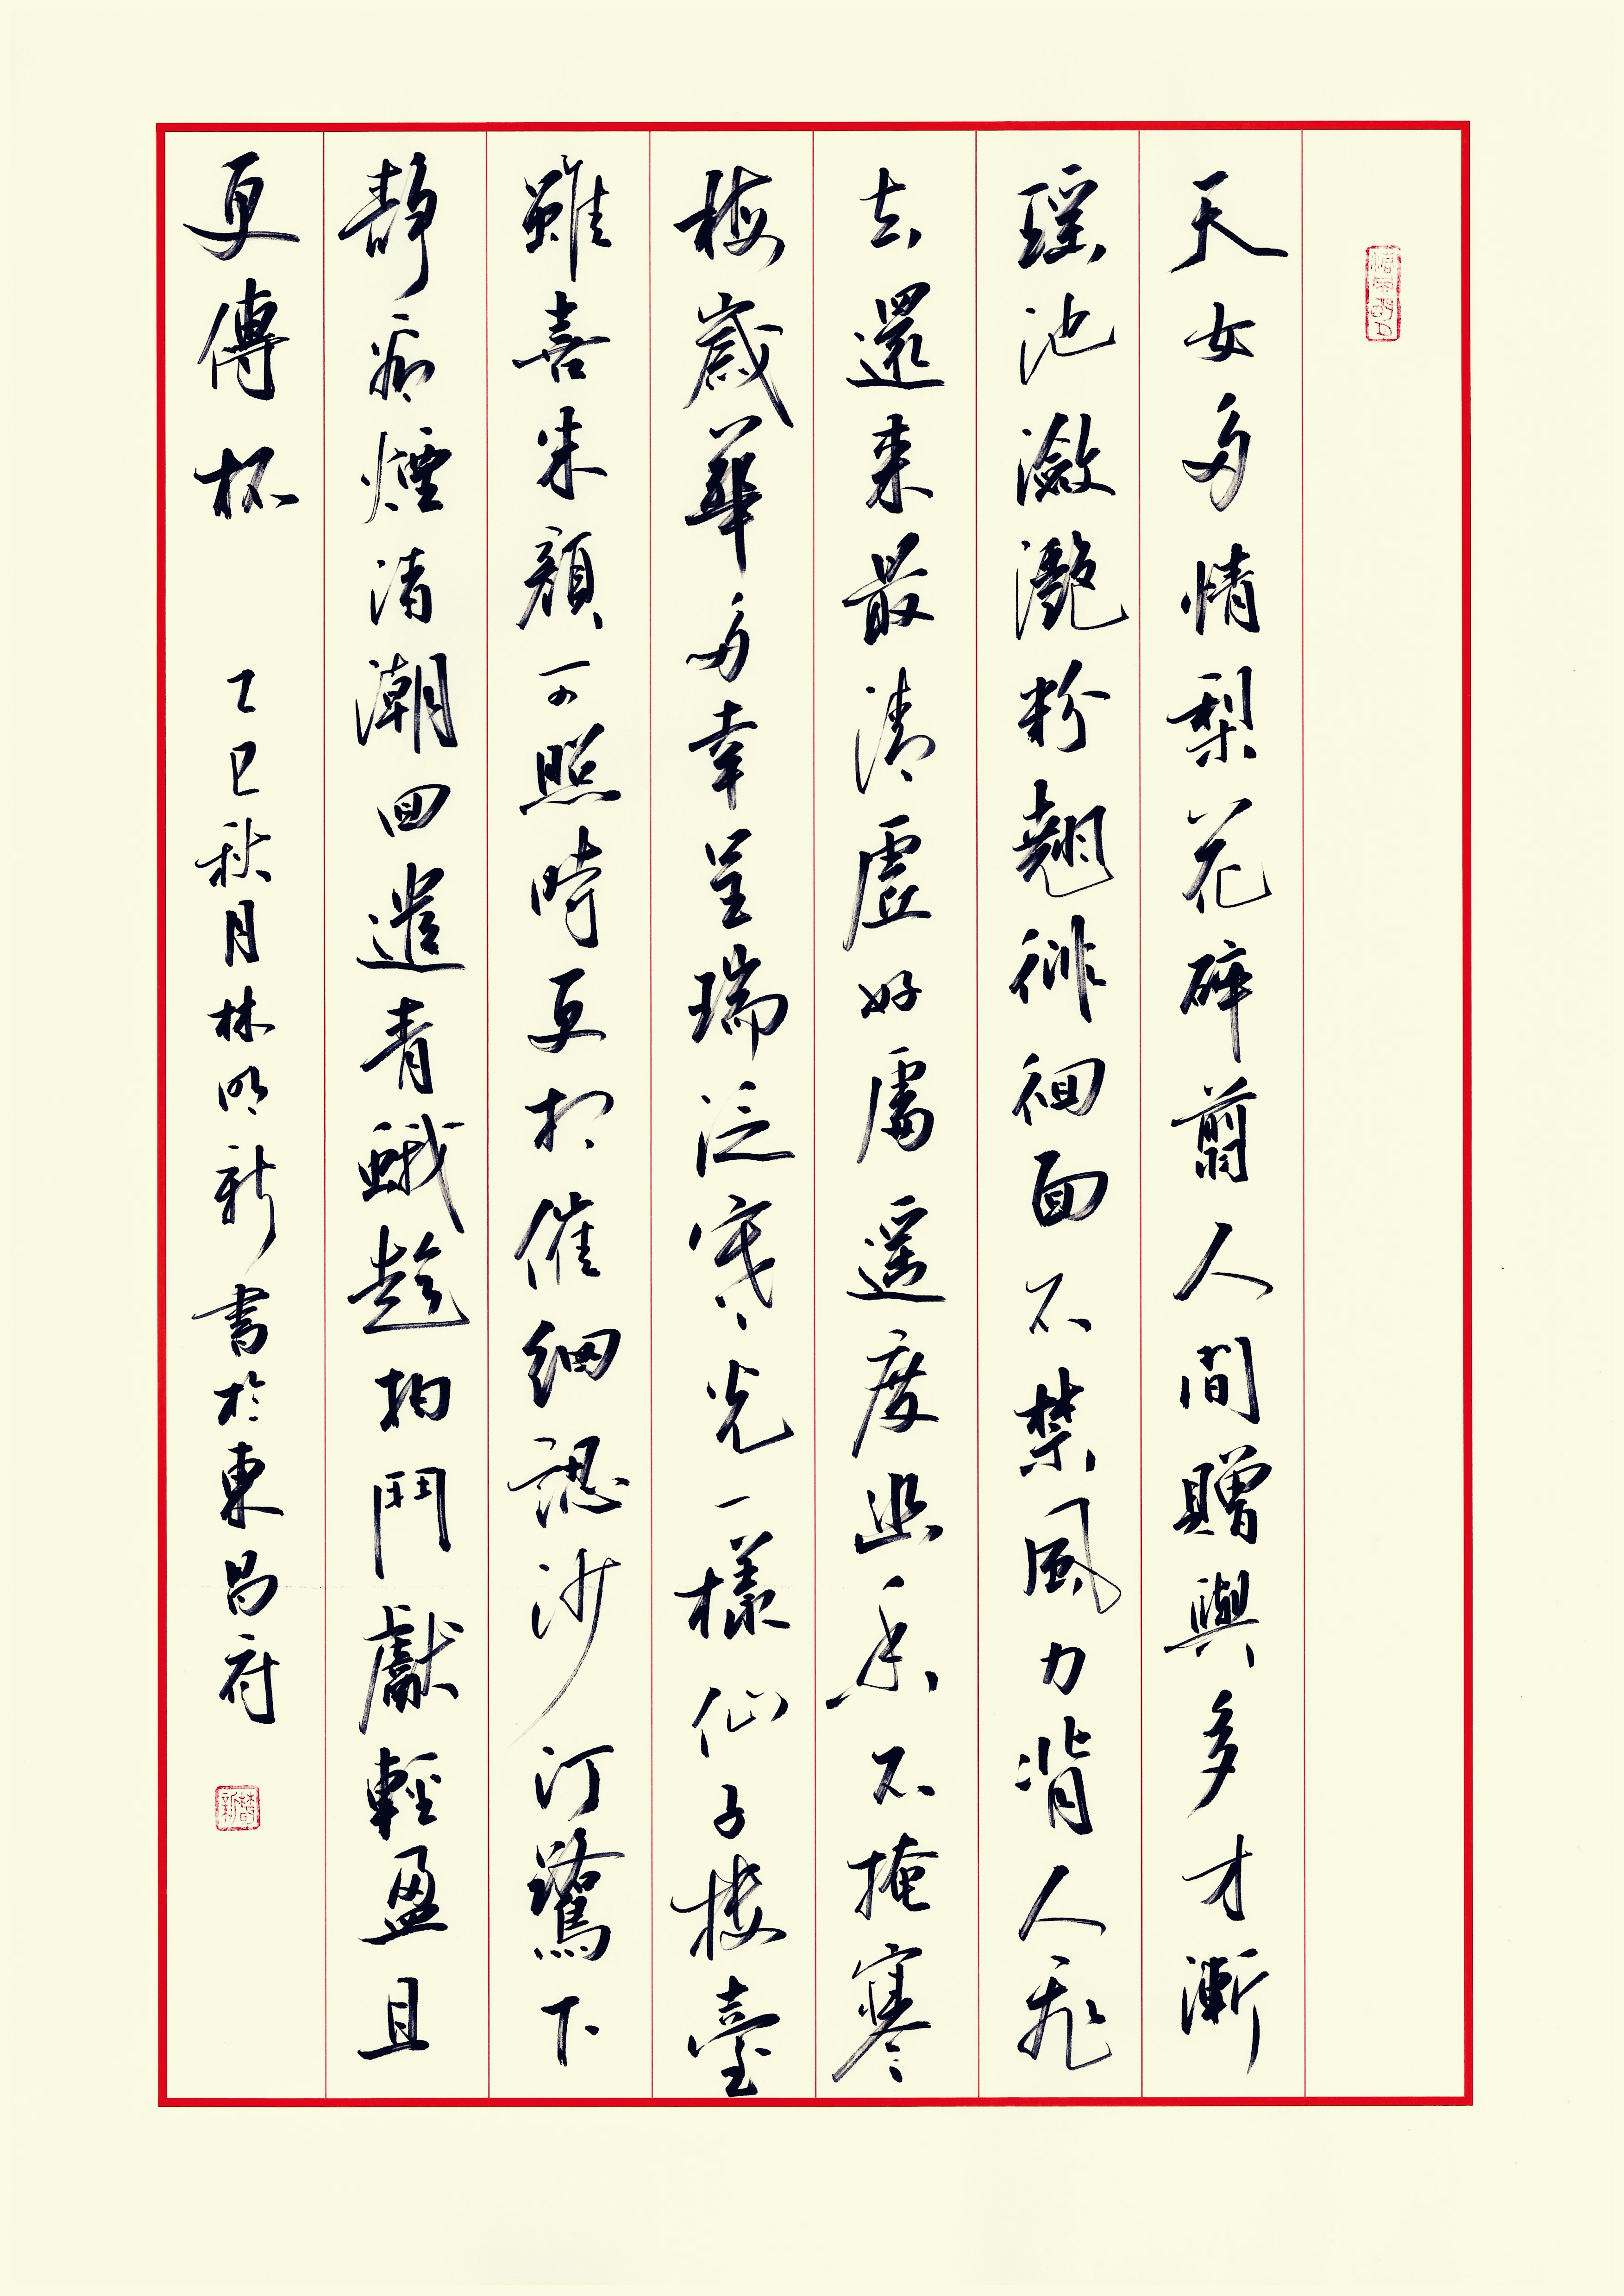 天女多情梨花碎翦人間贈與多才漸
瑤池瀲灩粉翹徘徊面不禁風力背人飛
去還來最清虛好處遙度幽香不掩寒
梅歲華多幸呈瑞泛寒光一樣仙子樓臺
雖喜朱顏可照時更相催細認沙汀鷺下
靜看煙渚潮回遣青蛾趁拍鬥獻輕盈且
更傳杯 乙巳秋月林明新書於東昌府